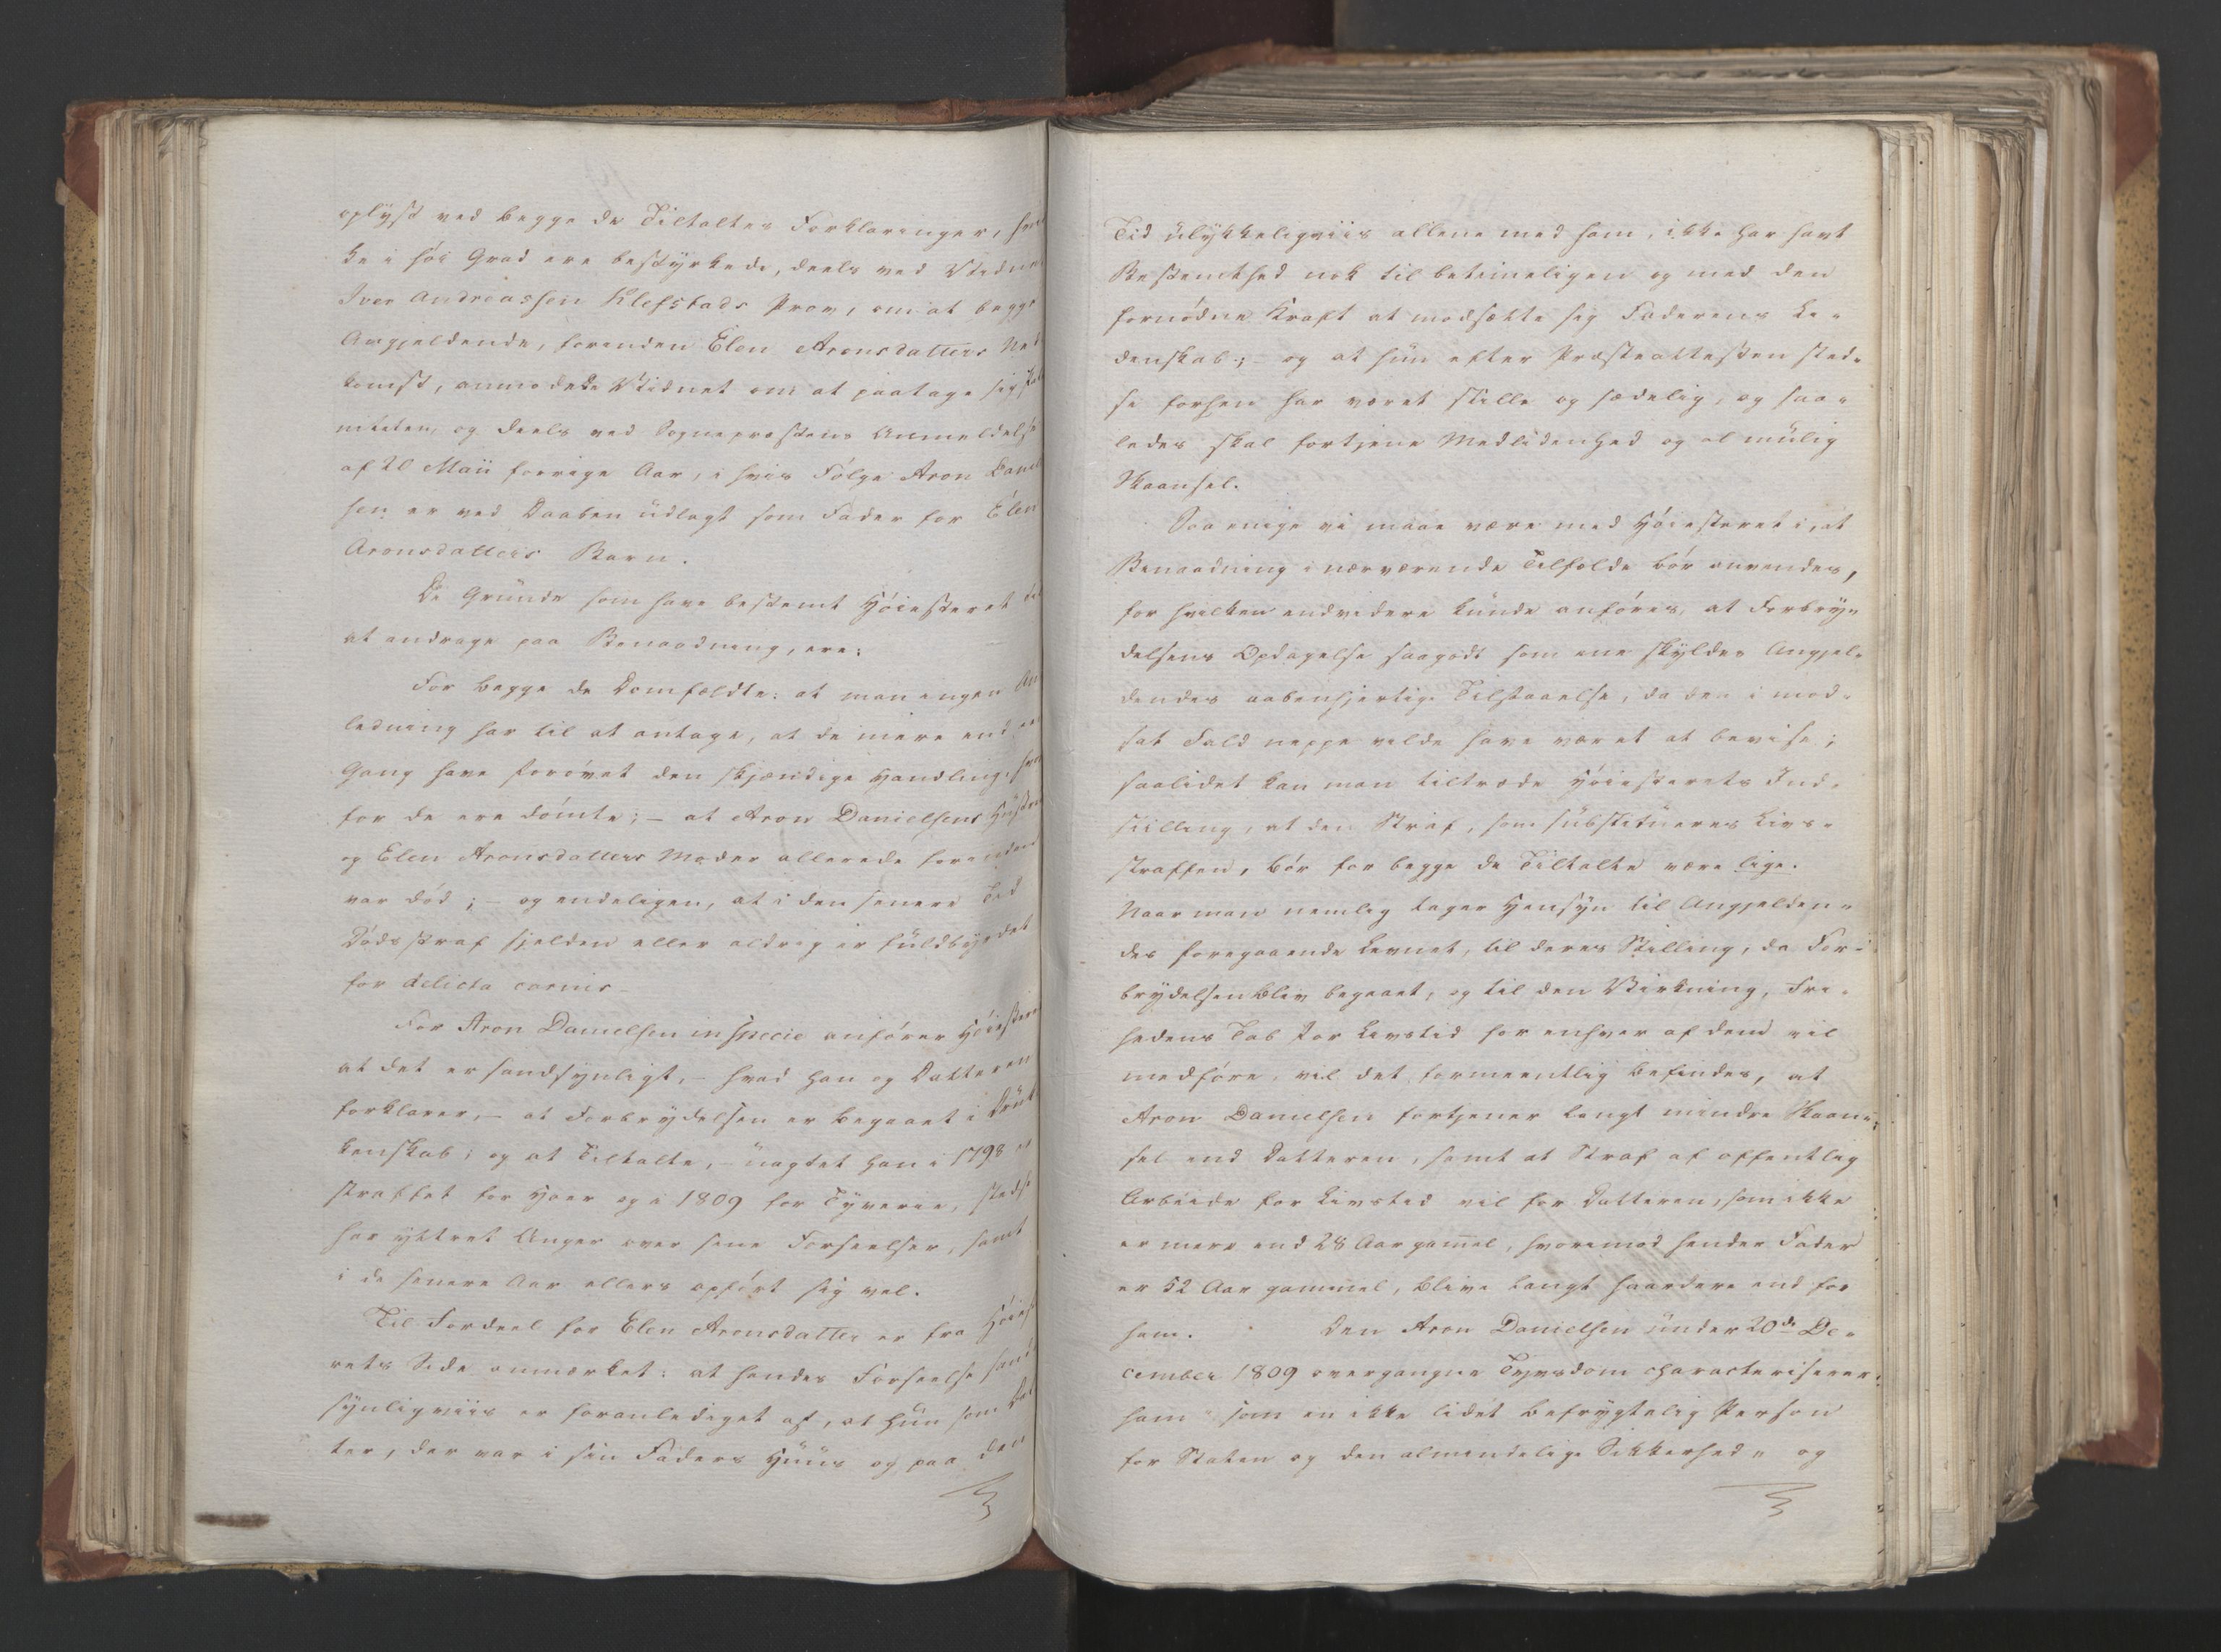 oplyst ved begge de Tiltaltes Forklaringer, hvil
ke i høi Grad ere bestyrkede, deels ved Vidnet
Iver Andreassen Klefstads Prov, om at begge
Angjeldende, forinden Elen Aronsdatters Ned
komst, anmodede Vidnet om at paatage sig Pater
niteten, og deels ved Sognepræstens Anmeldelse
af 20 Maii forrige Aar, i hvis Følge Aron Daniel
sen er ved Daaben udlagt som Fader for Elen
Aronsdatters Barn.
De Grunde som have bestemt Høiesteret til
at andrage paa Benaadning, ere:
For begge de Domfældte: at man ingen An
ledning har til at antage, at de mere end een
Gang have forøvet den skjændige Handling, hvor
for de ere dømte; – at Aron Danielsens Hustru
og Elen Aronsdatters Moder allerede forinden
var død; – og endeligen, at i den senere Tid
Dødsstraf sjelden eller aldrig er fuldbyrdet
for delicta carnis –
For Aron Danielsen in specie anfører Høiesteret
at det er sandsynligt, – hvad han og Datteren
forklarer, – at Forbrydelsen er begaaet i Druk
kenskab; og at Tiltalte, – uagtet han i 1798 er
straffet for Hoer og i 1809 for Tyverie, stedse
har yttret Anger over sine Forseelser, samt
i de senere Aar ellers opført sig vel.
Til Fordeel for Elen Aronsdatter er fra Høieste
rets Side anmærket: at hendes Forseelse sand
synligviis er foranlediget af, at hun som Dat
ter, der var i sin Faders Huus og paa den
Tid ulykkeligviis allene med ham, ikke har havt
Bestemthed nok til betimeligen og med den
fornødne Kraft at modsætte sig Faderens Li-
denskab; – og at hun efter Præsteattesten sted-
se forhen har været stille og sædelig, og saa-
ledes skal fortjene Medlidenhed og al mulig
Skaansel.
Saa enige vi maae være med Høiesteret i, at
Benaadning i nærværende Tilfælde bør anvendes,
for hvilken endvidere kunde anføres, at Forbry-
delsens Opdagelse saagodt som ene skyldes Angjel-
dendes aabenhjertige Tilstaaelse, da den i mod-
sat Fald neppe vilde have været at bevise;
saalidet kan man tiltræde Høiesterets Ind-
stilling, at den Straf, som substitueres Livs-
straffen, bør for begge de Tiltalte være lige.
Naar man nemlig tager Hensyn til Angjelden-
des foregaaende Levnet, til deres Stilling, da For-
brydelsen blev begaaet, og til den Virkning, Fri-
hedens Tab for Livstid for enhver af dem vil
medføre, vil det formeentlig befindes, at
Aron Danielsen fortjener langt mindre Skaan-
sel end Datteren, samt at Straf af offentlig
Arbeide for Livstid vil for Datteren, som ikke
er mere end 28 Aar gamel, hvorimod hendes Fader
er 52 Aar gammel, blive langt haardere end for
ham. Den Aron Danielsen under 20de De-
cember 1809 overgangne Tyvsdom characteriserer
ham som en ikke lidet befrygtelig Person
for Staten og den almindelige Sikkerhed, og